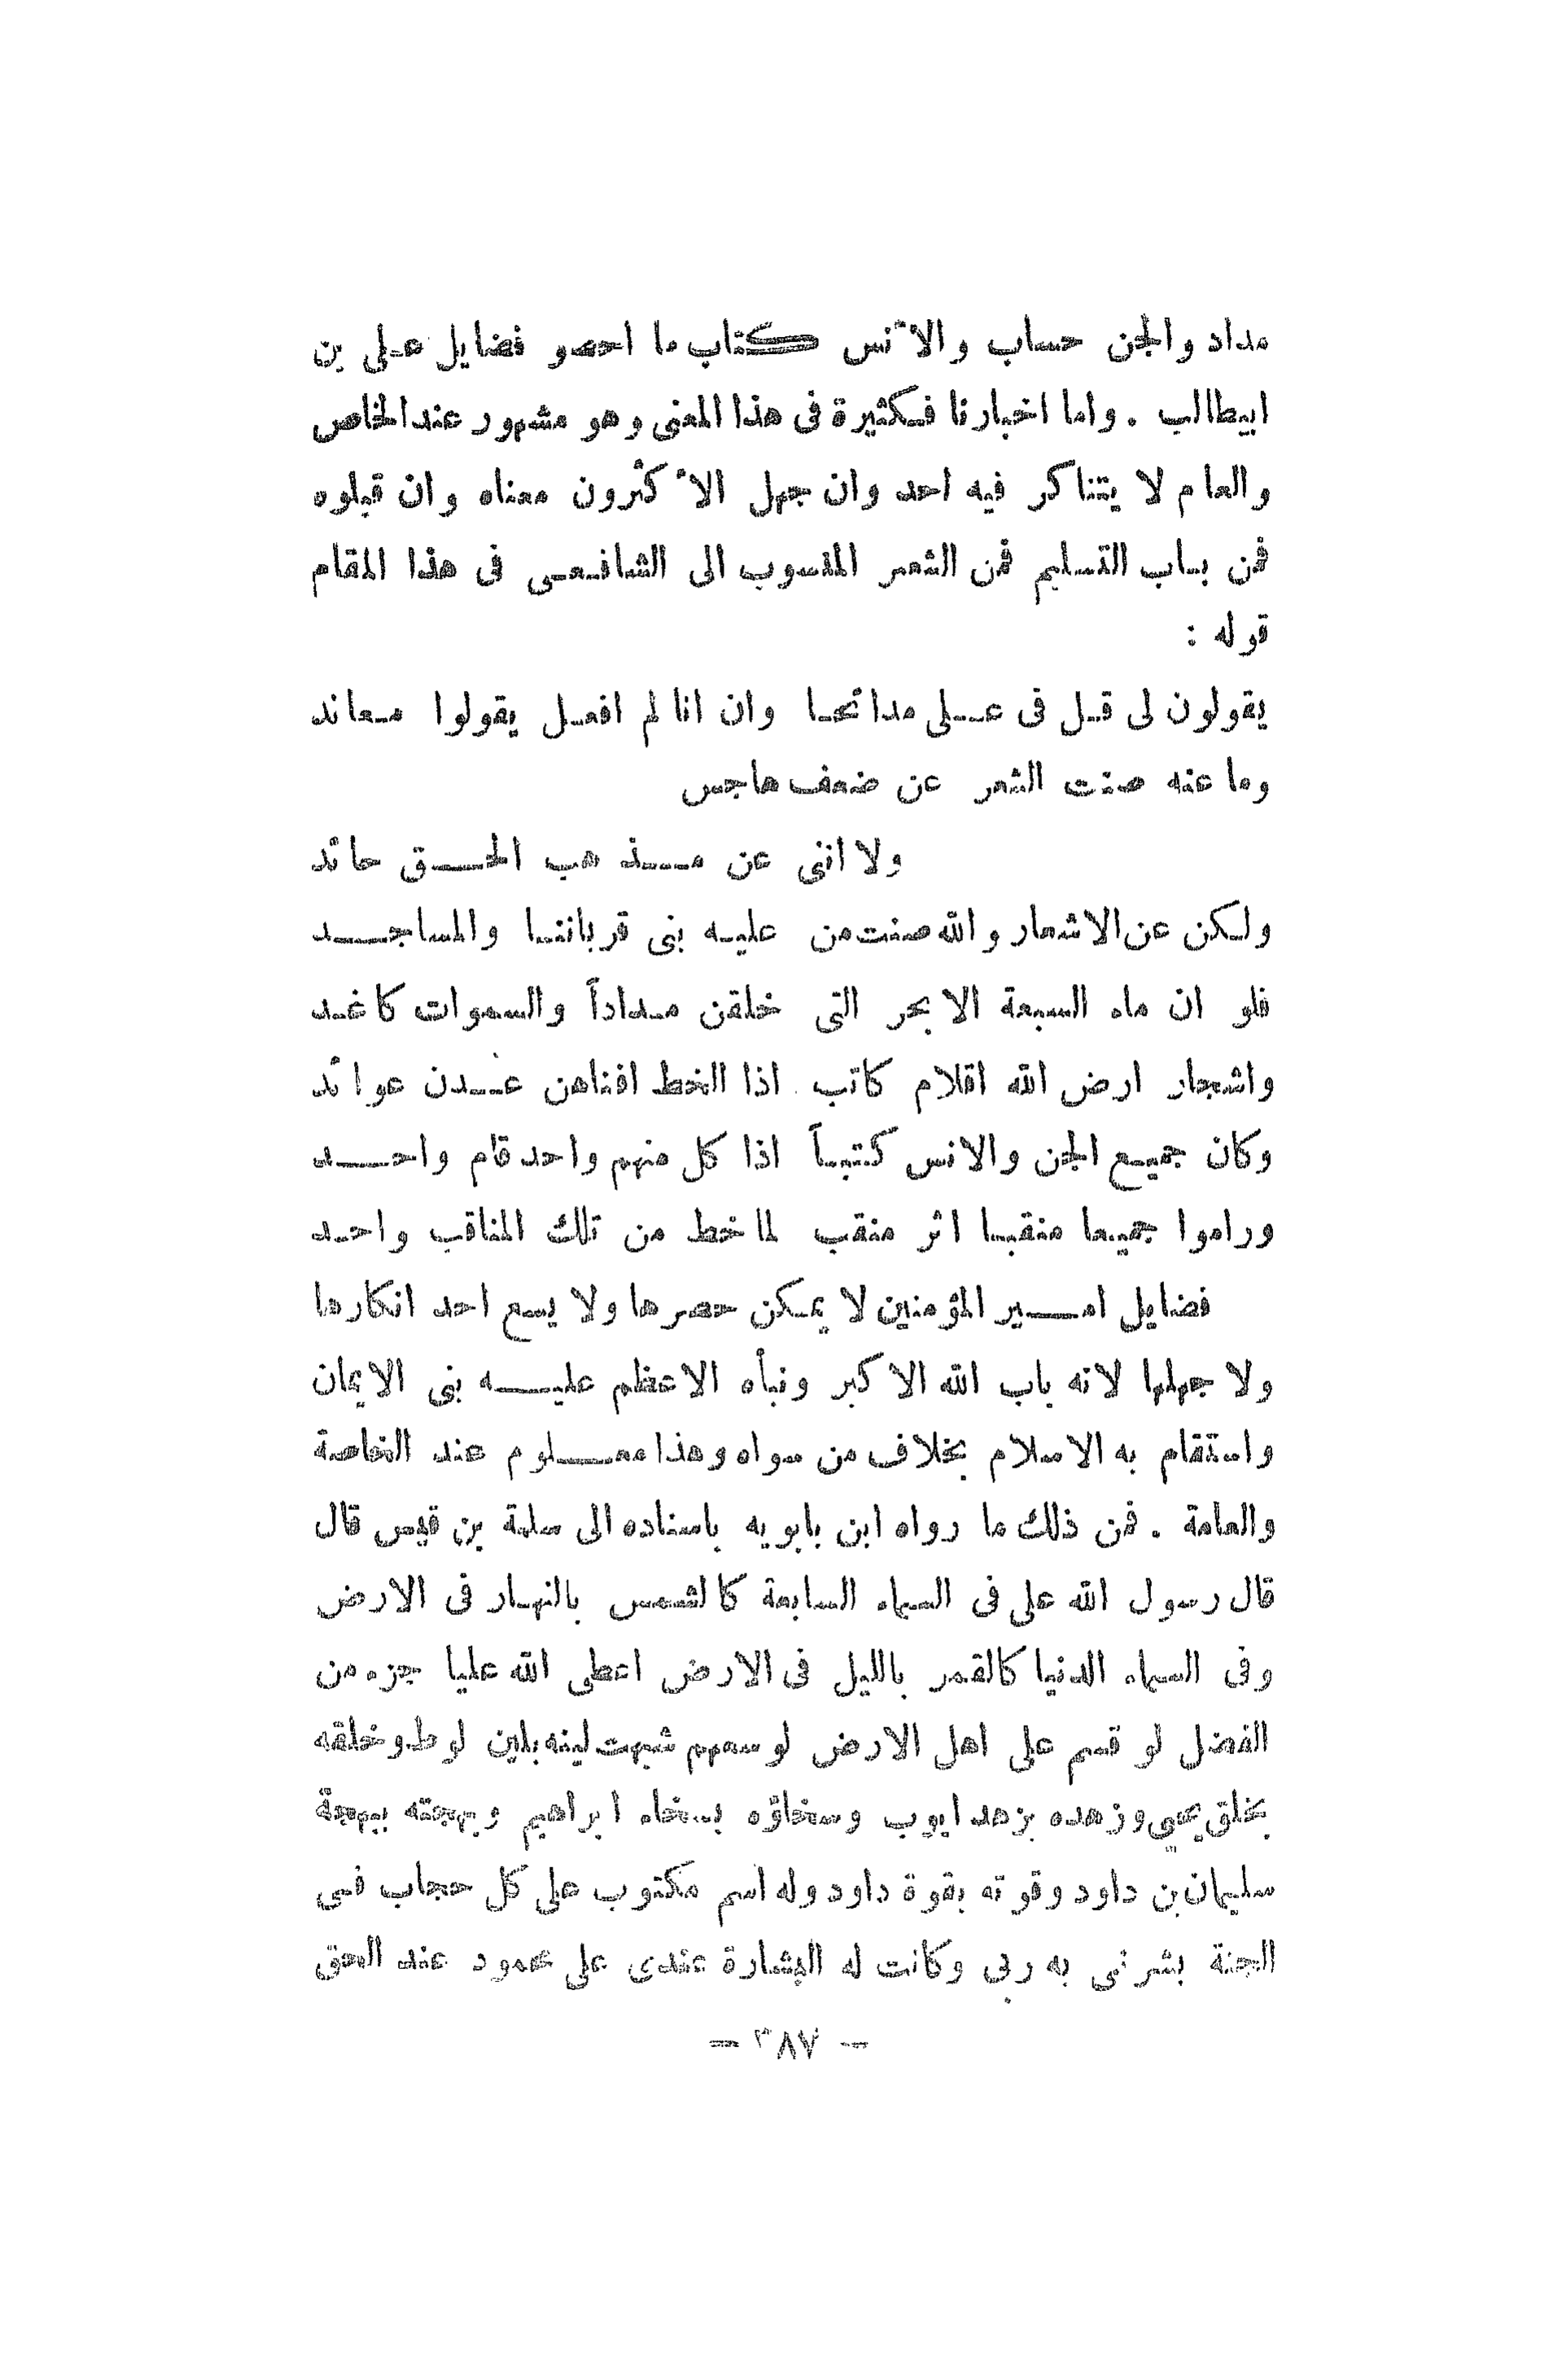 مداد والجن حساب والانس كتاب ما احصو فضايل على بن
ابيطالب . واما اخبارنا فكثيرة فى هذا المعنى وهو مشهور عند الخاص
والعام لا يتناكر فيه احد وان جهل الأكثرون معناه وان قبلوه
فمن باب التسليم فمن الشعر المنسوب الى الشافعى فى هذا المقام
قوله :
يقولون لى قل فى على مدائحا وان انا لم افعل يقولوا معاند
وما عنه صنت الشعر عن ضعف هاجس
ولا اننى عن مذهب الحق حائد
ولكن عن الاشعار والله صنت من عليه بنى قرباننا والمساجد
فلو ان ماء السبعة الابحر التى خلقن مداداً والسموات كاغد
واشجار ارض الله اقلام كاتب اذا الخط افناهن عدن عوائد
وكان جميع الجن والانس كتباً اذا كل منهم واحد قام واحد
وراموا جميعا منقبا اثر منقب لما خط من تلك المناقب واحد
فضايل امير المؤمنين لا يمكن حصرها ولا يسع احد انكارها
ولا جهلها لانه باب الله الاكبر ونبأه الاعظم عليه بنى الايمان
واستقام به الاسلام بخلاف من سواه وهذا معلوم عند الخاصة
والعامة . فمن ذلك ما رواه ابن بابويه باسناده الى سلمة بن قيس قال
قال رسول الله على فى السماء السابعة كالشمس بالنهار فى الارض
وفى السماء الدنيا كالقمر بالليل فى الارض اعطى الله عليا جزء من
الفضل لو قسم على اهل الارض لوسعهم شبهت لينه بلين لوط وخلقه
بخلق يحيى وزهده بزهد ايوب وسخاؤه بسخاء ابراهيم وبهجته ببهجة
سليمان بن داود وقوته بقوة داود وله اسم مكتوب على كل حجاب فى
الجنة بشرنى به ربى وكانت له البشارة عندى على محمود عند الحق
— ٣٨٧ —